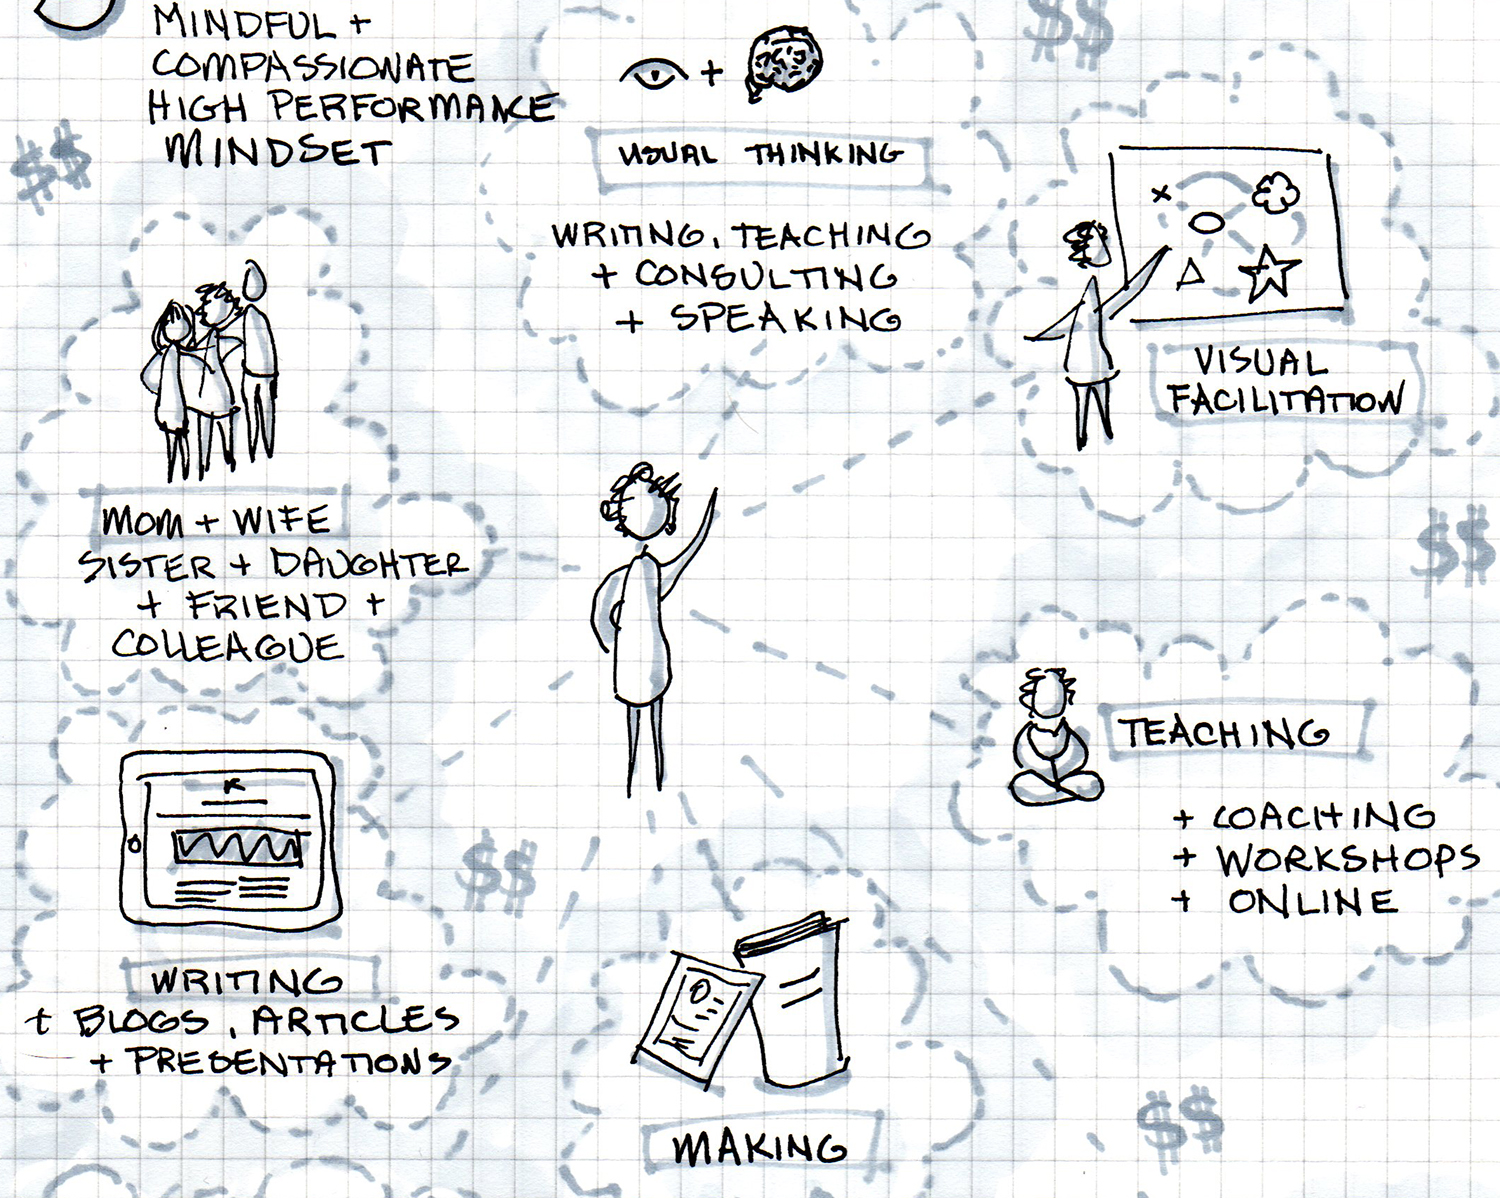 $$
MINDFUL +
COMPASSIONATE
HIGH PERFORMANCE
MINDSET
$$
+
VISUAL THINKING
WRITING, TEACHING
+ CONSULTING
+ SPEAKING
VISUAL
FACILITATION
MOM + WIFE
SISTER + DAUGHTER
+ FRIEND +
COLLEAGUE
$$
TEACHING
+ COACHING
+ WORKSHOPS
+ ONLINE
K
$$
WRITING
+ BLOGS, ARTICLES
+ PRESENTATIONS
MAKING
$$